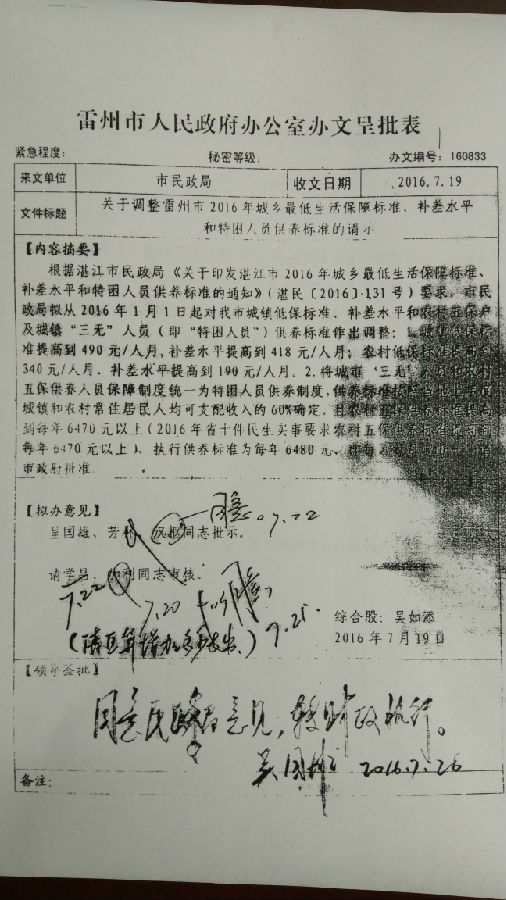 雷州市人民政府办公室办文呈批表
紧急程度： 秘密等级： 办文编号：160833
来文单位 市民政局 收文日期 2016.7.19
文件标题 关于调整雷州市2016年城乡最低生活保障标准、补差水平
和特困人员供养标准的请示
【内容摘要】
根据湛江市民政局《关于印发湛江市2016年城乡最低生活保障标准、
补差水平和特困人员供养标准的通知》（湛民〔2016〕131号）要求，市民
政局拟从2016年1月1日起对我市城镇低保标准、补差水平和农村五保户
及城镇“三无”人员（即“特困人员”）供养标准作出调整：1.城镇低保标
准提高到490元/人月，补差水平提高到418元/人月；农村低保标准提高到
340元/人月，补差水平提高到190元/人月。2.将城镇“三无”人员和农村
五保供养人员保障制度统一为特困人员供养制度，供养标准
城镇和农村常住居民人均可支配收入的60%确定，且农村
到每年6470元以上（2016年省十件民生实事要求农村五保供养
每年6470元以上），执行供养标准为每年6480元。
市政府批准。
【拟办意见】
同意。7.22
呈国雄、芳 同志批示。
请学昌、 同志审核。
7.22 7.20 7.25
综合股：吴如添
2016年7月19日
【领导签批】
同意民政局意见，转财政执行。
2016.7.26
备注：